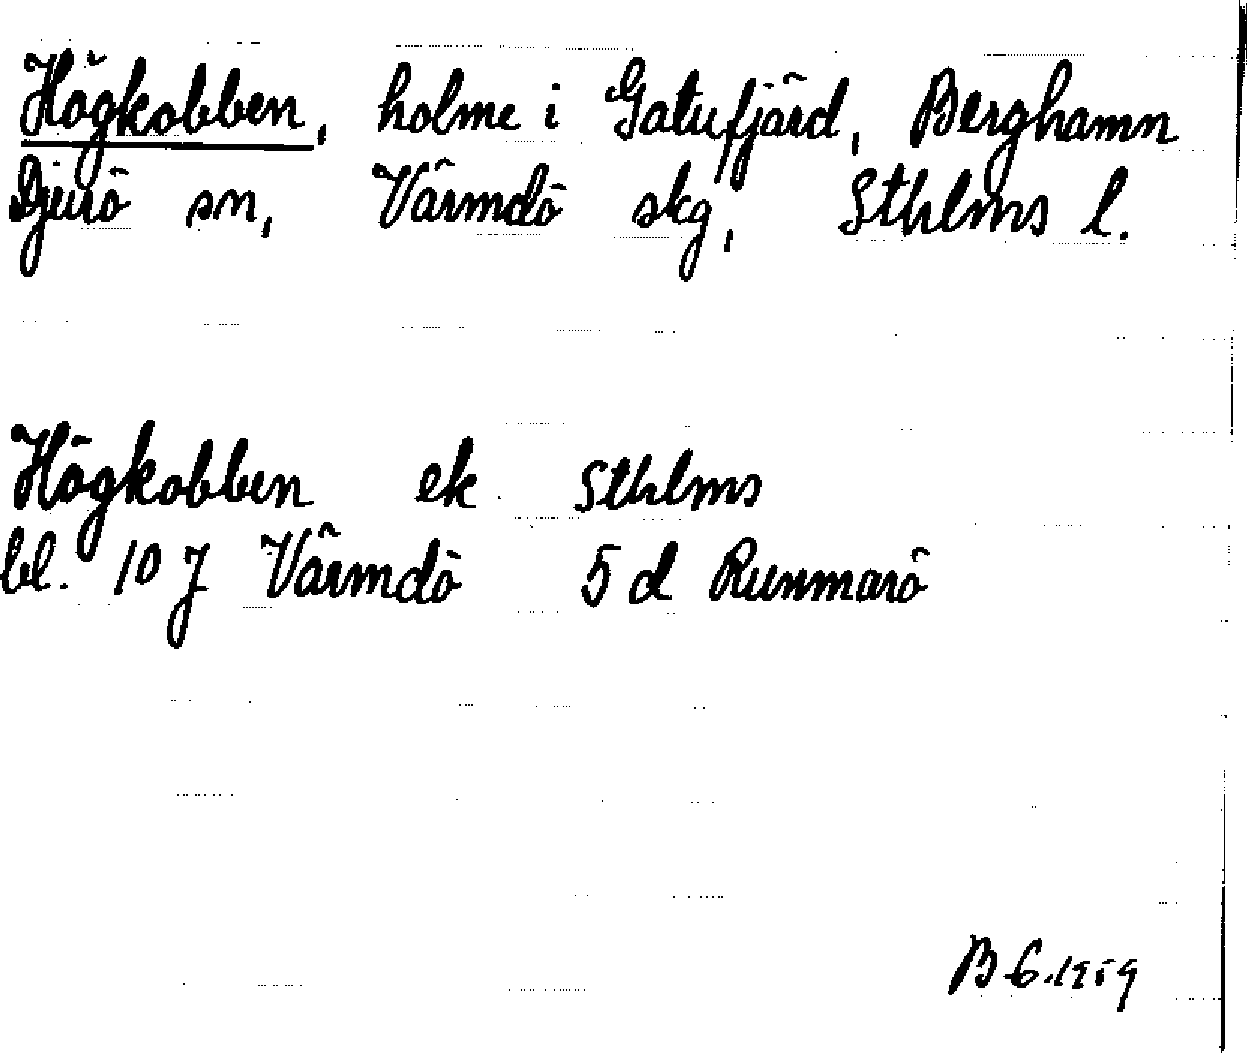 Högkobben, holme i Gatufjärd, Berghamn
Djurö sn, Värmdö skg, Sthlms l.
Högkobben ek Sthlms
bl. 10 J Värmdö 5 d Runmarö
B 6.1959